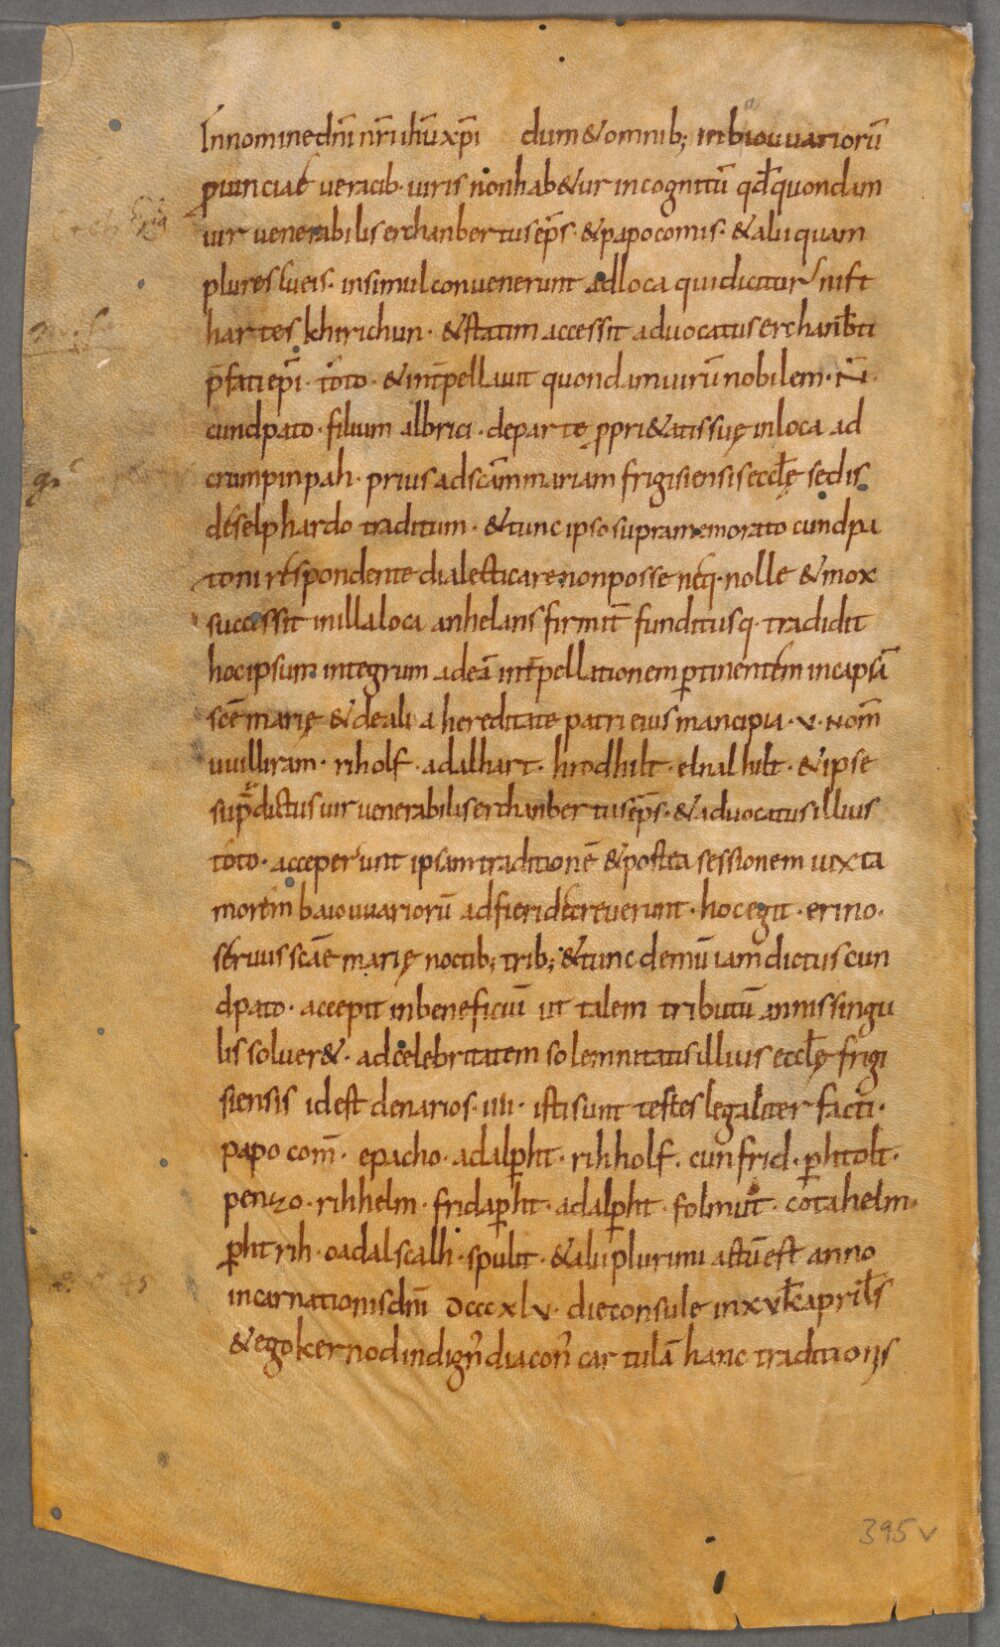 In nomine dn̄i nr̄i ihū xpī dum & omnib; in baiouuariorū
ꝓuinciae veracib· uiris non hab&ur incognitū qđ quondam
uir venerabilis erchanbertus ep̄s· & papo comis· & alii quam
plures sueis· insimul convenerunt ad loca qui dicitur nift
hartes khirichun· & statim accessit advocatus erchanb̄ti
p̄fati ep̄i· toto· & int̄pellavit quondam uirū nobilem· N̄·
cundpato· filium albrici· de parte ꝓpri&atis suę in loca ad
crumpinpah· prius ad sc̄am mariam frigisiensis eccłę sedis
de selphardo traditum· & tunc ipso supramemorato cundpa
toni respondente dialecticare non posse neq· nolle & mox
successit in illa loca anhelans firmit̄ funditusq· tradidit
hoc ipsum integrum ad eā int̄pellationem ꝑtinentem in capsā
sc̄e marię & de alia hereditate patri eius mancipia· v· nom̄
uuilliram· riholf· adalhart· hrodhilt· elnalhilt· & ipse
sup̄dictus uir venerabilis erchanbertus ep̄s· & advocatus illius
toto· acceperunt ipsam traditionē & postea sessionem iuxta
morem baiouuariorū ad fieri decreverunt· hoc egit· erino·
servus sc̄ae marię noctib; trib; & tunc demū iam dictus cun
dpato· accepit in beneficiū ut talem tributū annis singu
lis solver&· ad celebritatem solemnitatis illius eccłę frigi
siensis id est denarios· IIII· isti sunt testes legaliter facti·
papo com̄· epacho· adalꝑht· rihholf· cunfrid· ꝑhtolt·
penzo· rihhelm· fridaꝑht· adalꝑht· folmůt· cotahelm·
ꝑhtrih· oadalscalh· spulit· & alii plurimi actū est anno
incarnationis dn̄i dcccxlv· die consule in xv kł apriłs
& ego kernod indign̄ diacon̄ cartulā hanc traditionis
395v